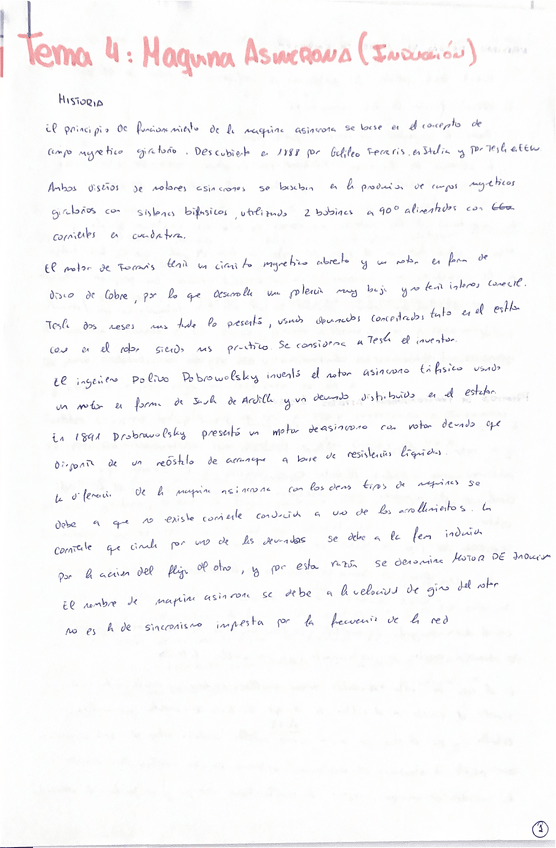 Tema 4: Maquina Asincrona (Inducción)
Historia
El principio de funcionamiento de la maquina asincrona se basa en el concepto de
campo magnetico giratorio. Descubierto en 1888 por Galileo Ferraris en Italia y por Tesla en EEUU
Ambos diseños de motores asincrones se basaban en la producción de campos magneticos
giratorios con sistemas bifasicos, utilizando 2 bobinas a 90º alimentadas con
corrientes en cuadratura.
El motor de Ferraris tenia un circuito magnetico abierto y un rotor en forma de
disco de cobre, por lo que desarrolla una potencia muy baja y no tenia interes comercial.
Tesla dos meses mas tarde lo presentó, usando devanados concentrados tanto en el estator
como en el rotor siendo mas practico se considera a Tesla el inventor.
El ingeniero Dolivo Dobrowolsky inventó el motor asincrono trifasico usando
un rotor en forma de Jaula de Ardilla y un devanado distribuido en el estator.
En 1891 Drobrawolsky presentó un motor de asincrono con rotor devanado que
disponia de un reóstato de arranque a base de resistencias líquidas.
La diferencia de la maquina asincrona con los demas tipos de maquinas se
debe a que no existe corriente conducida a uno de los arrollimientos. La
corriente que circula por uno de los devanados se debe a la fem inducida
por la accion del flujo del otro, y por esta razón se denomina MOTOR DE INDUCCION
El nombre de maquina asincrona se debe a la velocidad de giro del rotor
no es la de sincronismo impuesta por la frecuencia de la red
1